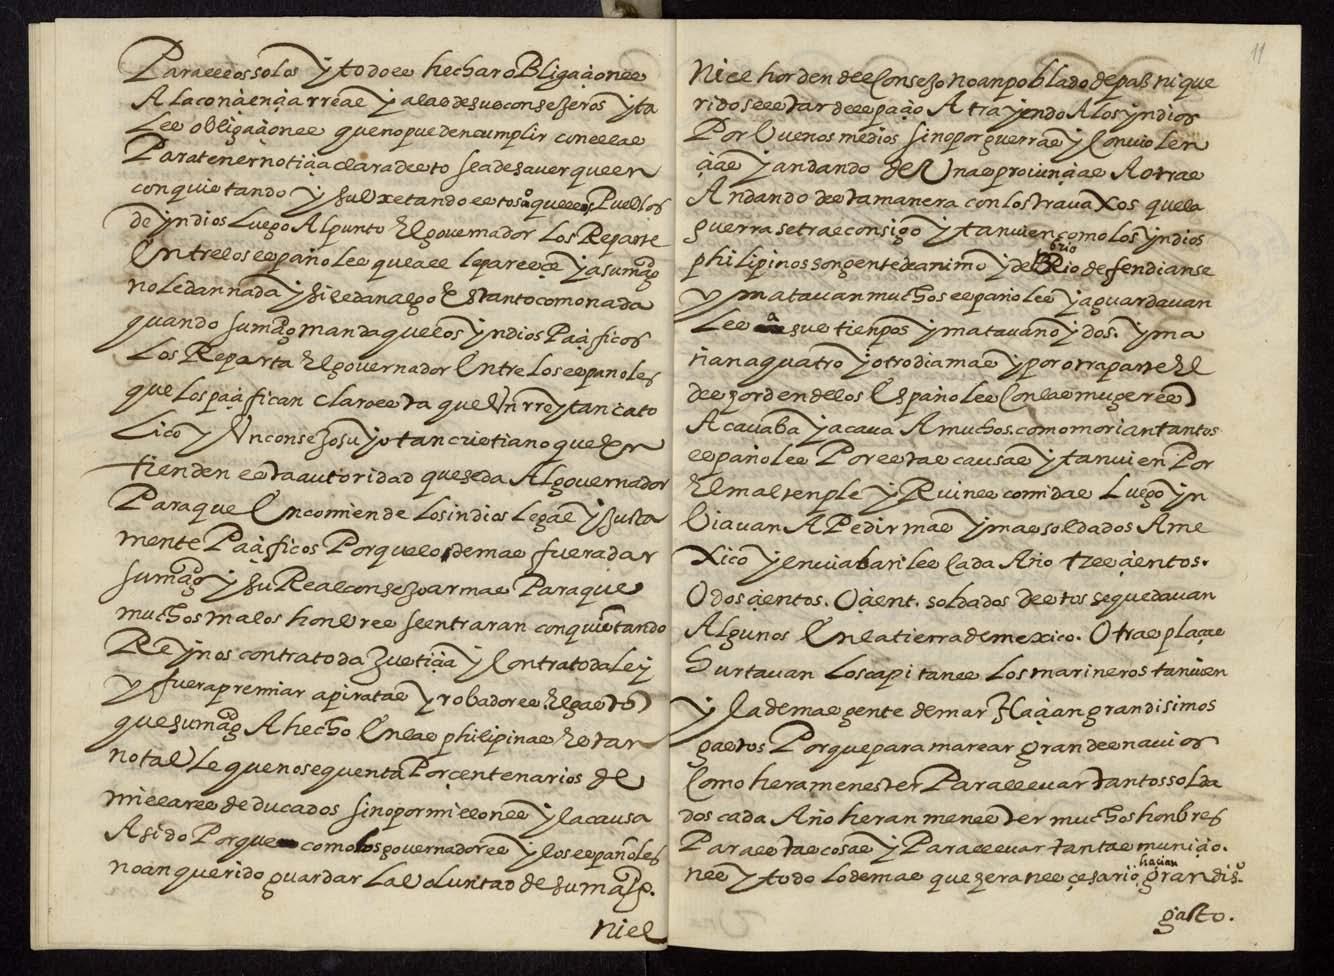 Para ellos solos y todo es hechar obligaçiones
A la conçiençia rreal y a las de sus consejeros y ta
les obligaçiones que no pueden cumplir con ellas
Para tener notiçia clara desto sea de saver que en
conquistando y subxetando estos o aquellos Pueblos
de yndios luego Al punto El governador los Reparte
Entre los españoles que a el le pareçe y a su magd
no le dan nada y si le dan algo Es tanto como nada
quando su magd manda que los yndios Paçificos
Los Reparta El governador Entre los españoles
que los paçifican claro esta que Un rrey tan cato
Lico y Un consejo suyo tan cristiano que En
tienden esta autoridad que se da Al governador
Para que Encomiende los indios legal y justa
mente Paçificos Porque lo demas fuera dar
su magd y su Real consejo armas Para que
muchos malos honbres se entraran conquistando
Reynos contra toda Justiçia y contra toda ley
y fuera premiar a piratas y robadores El gasto
que su magd A hecho En las philipinas Es tan
notable que no se quenta Por centenarios de
millares de ducados sino por millones y la causa
A sido Porque como los governadores y los españoles
no an querido guardar la voluntad de su magd.
ni el
11
Ni el horden del Consejo no an poblado de paz ni que
rido seestar de espaçio Atrayendo A los yndios
Por buenos medios sino por guerras y Con violen
çias y andando de Unas provinçias A otras
Andando desta manera con los travaxos que la
guerra se trae consigo y tanvien como los yndios
philipinos son gente de animo y de Brio defendianse
brio
y matavan muchos españoles y aguardavan
Les a sus tienpos y matavan oy dos. y ma
ñana quatro y otro dia mas y por otra parte El
desorden de los Españoles Con las mugeres
Acavaba y acava A muchos. como morian tantos
españoles Por estas causas y tanvien Por
El mal temple y Ruines comidas Luego yn
biavan A Pedir mas y mas soldados A me
xico y enviabanles Cada Año tresçientos.
O dosçientos. O çient. soldados destos se quedavan
Algunos En la tierra de mexico. Otras plaças
hurtavan los capitanes los marineros tanvien
y la demas gente de mar Haçian grandisimos
gastos Porque para marear grandes navios
Como hera menester Para llevar tantos solda
dos cada Año heran menester muchos honbres
Para estas cosas y Para llevar tantas muniçio.
nes y todo lo demas que era neçesario, hacian grandiso.
gasto.